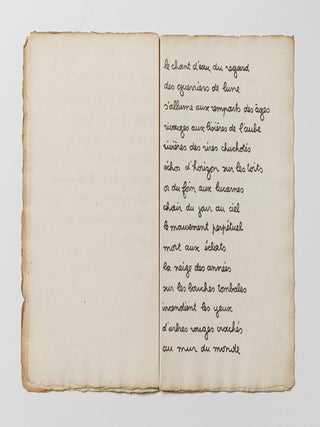 le chant d'eau du regard
des guerriers de lune
s'allume aux remparts des âges
visages aux lisières de l'aube
rivières des rires chuchotés
échos d'horizon sur les toits
or du foin aux lucarnes
chair du jour au ciel
le mouvement perpétuel
mort aux éclats
la neige des années
sur les bouches tombales
incendient les yeux
d'arbres rouges crachés
au mur du monde